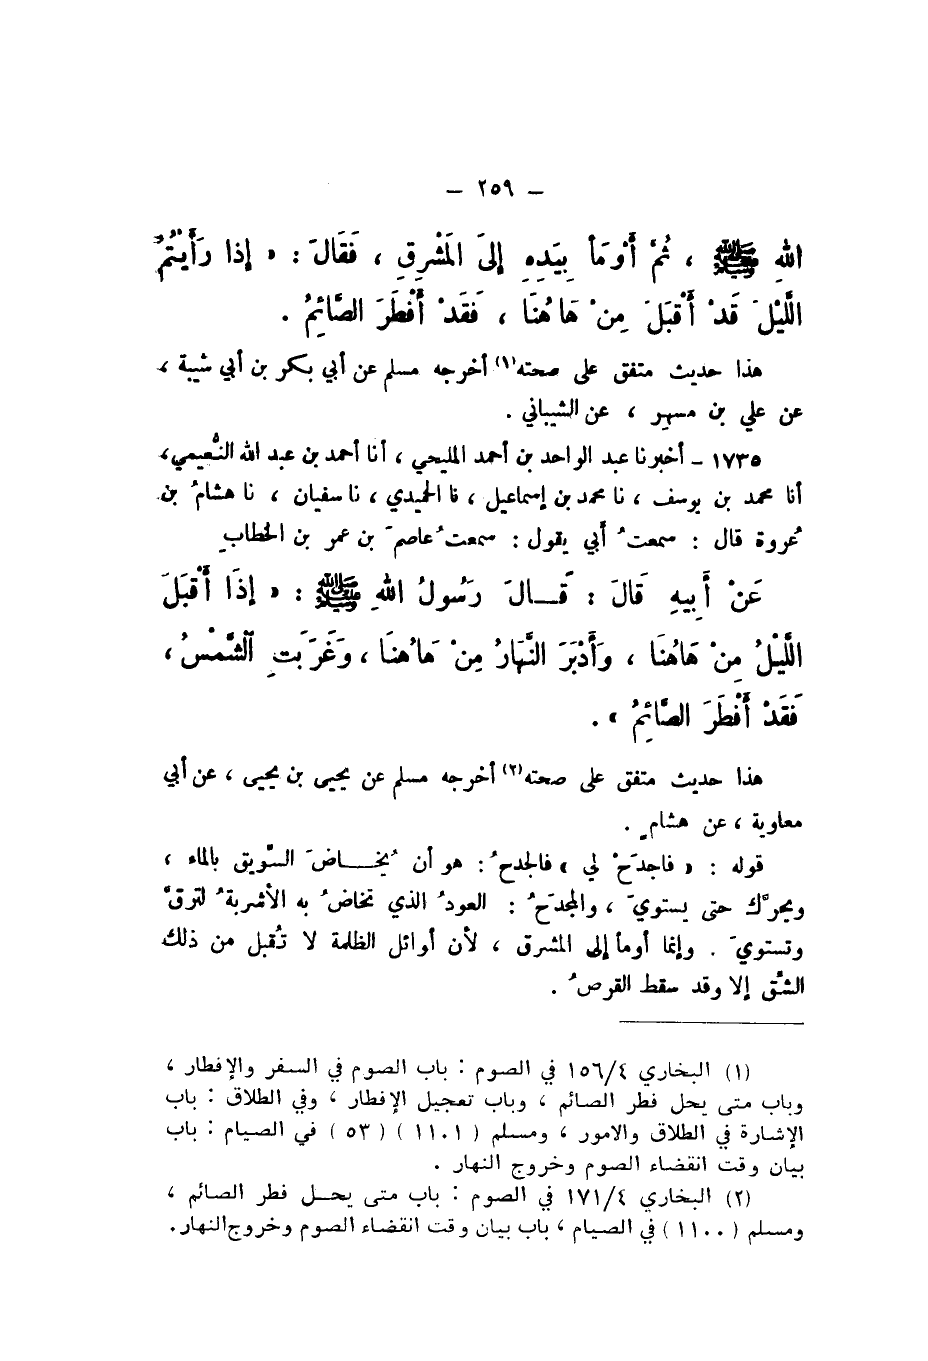 — ٢٥٩ —
اللهِ ﷺ ، ثُمَّ أَوْمَأَ بِيَدِهِ إِلَى المَشْرِقِ ، فَقَالَ : « إِذا رَأَيْتُمُ
اللَّيْلَ قَدْ أَقْبَلَ مِنْ هَا هُنَا ، فَقَدْ أَفْطَرَ الصَّائِمُ .
هذا حديث متفق على صحته(١) أخرجه مسلم عن أبي بكر بن أبي شيبة ،
عن علي بن مسهر ، عن الشيباني .
١٧٣٥ – أخبرنا عبد الواحد بن أحمد المليحي ، أنا أحمد بن عبد الله النُّعيمي،
أنا محمد بن يوسف ، نا محمد بن إسماعيل ، نا الحميدي ، نا سفيان ، نا هشامُ بن
عُروة قال : سمعتُ أبي يقول : سمعتُ عاصمَ بن عمر بن الخطابِ
عَنْ أَبِيهِ قَالَ : قَـالَ رَسُولُ اللهِ ﷺ : « إِذَا أَقْبَلَ
اللَّيْلُ مِنْ هَاهُنَا ، وَأَدْبَرَ النَّهَارُ مِنْ هَاهُنَا ، وَغَرَبَتِ الشَّمْسُ ،
فَقَدْ أَفْطَرَ الصَّائِمُ » .
هذا حديث متفق على صحته(٢) أخرجه مسلم عن يحيى بن يحيى ، عن أبي
معاوية ، عن هشامٍ .
قوله : « فاجدَحْ لي » فالجدحُ : هو أن يُخـاضَ السَّويق بالماء ،
ويحرَّك حتى يستويَ ، والمجدَحُ : العودُ الذي تخاضُ به الأشربةُ لترقَّ
وتستويَ . وإنما أومأ إلى المشرق ، لأن أوائل الظلمة لا تُقبل من ذلك
الشَّق إلا وقد سقط القرصُ .
(١) البخاري ١٥٦/٤ في الصوم : باب الصوم في السفر والإفطار ،
وباب متى يحل فطر الصائم ، وباب تعجيل الإفطار ، وفي الطلاق : باب
الإشارة في الطلاق والامور ، ومسلم ( ١١٠١ ) ( ٥٣ ) في الصيام : باب
بيان وقت انقضاء الصوم وخروج النهار .
(٢) البخاري ١٧١/٤ في الصوم : باب متى يحـل فطر الصائم ،
ومسلم ( ١١٠٠ ) في الصيام ، باب بيان وقت انقضاء الصوم وخروج النهار .